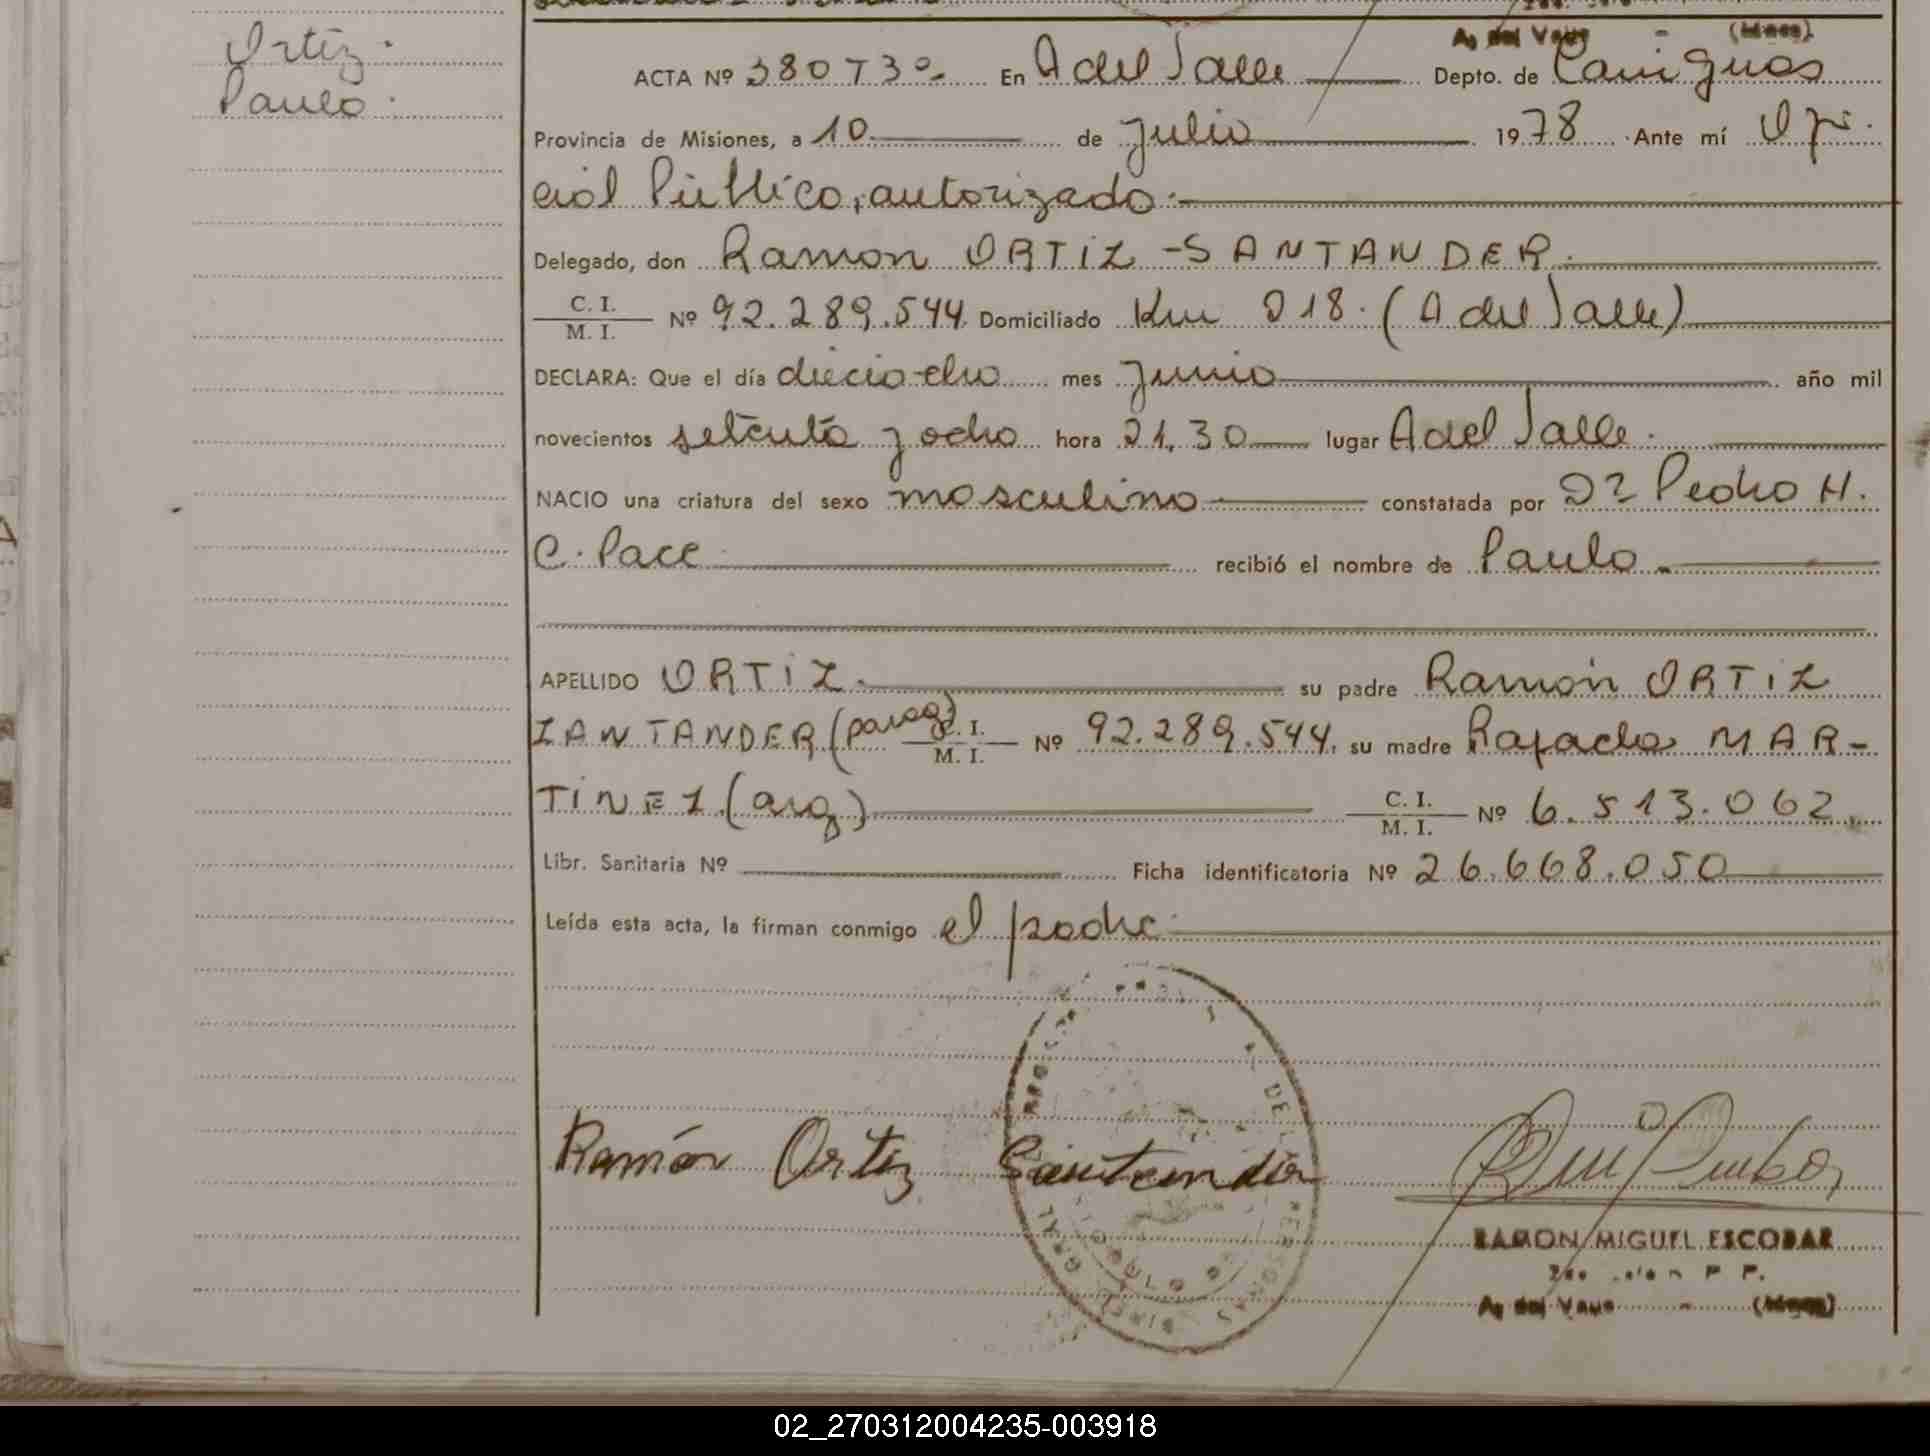 Ortiz.
Paulo.
A. del Valle - (Mnes)
ACTA Nº 380 T 3º En A del Valle Depto. de Cainguas
Provincia de Misiones, a 10 de julio 1978. Ante mí Ofi-
cial Público, autorizado.
Delegado, don Ramon ORTIZ - SANTANDER.
C. I.
M. I. Nº 92.289.544. Domiciliado Km 218. (A del Valle)
DECLARA: Que el día dieciocho mes junio año mil
novecientos setenta y ocho hora 21,30 lugar A del Valle.
NACIO una criatura del sexo masculino constatada por Dr Pedro H.
C. Pace recibió el nombre de Paulo.
APELLIDO ORTIZ. su padre Ramón ORTIZ
ZANTANDER (parag) C. I. M. I. Nº 92.289.544, su madre Rafaela MAR-
TINEZ (arg) C. I. M. I. Nº 6.513.062.
Libr. Sanitaria Nº Ficha identificatoria Nº 26.668.050
Leída esta acta, la firman conmigo el padre.
Ramón Ortiz Santander
RAMON MIGUEL ESCOBAR
A. del Valle - (Mnes)
02_270312004235-003918